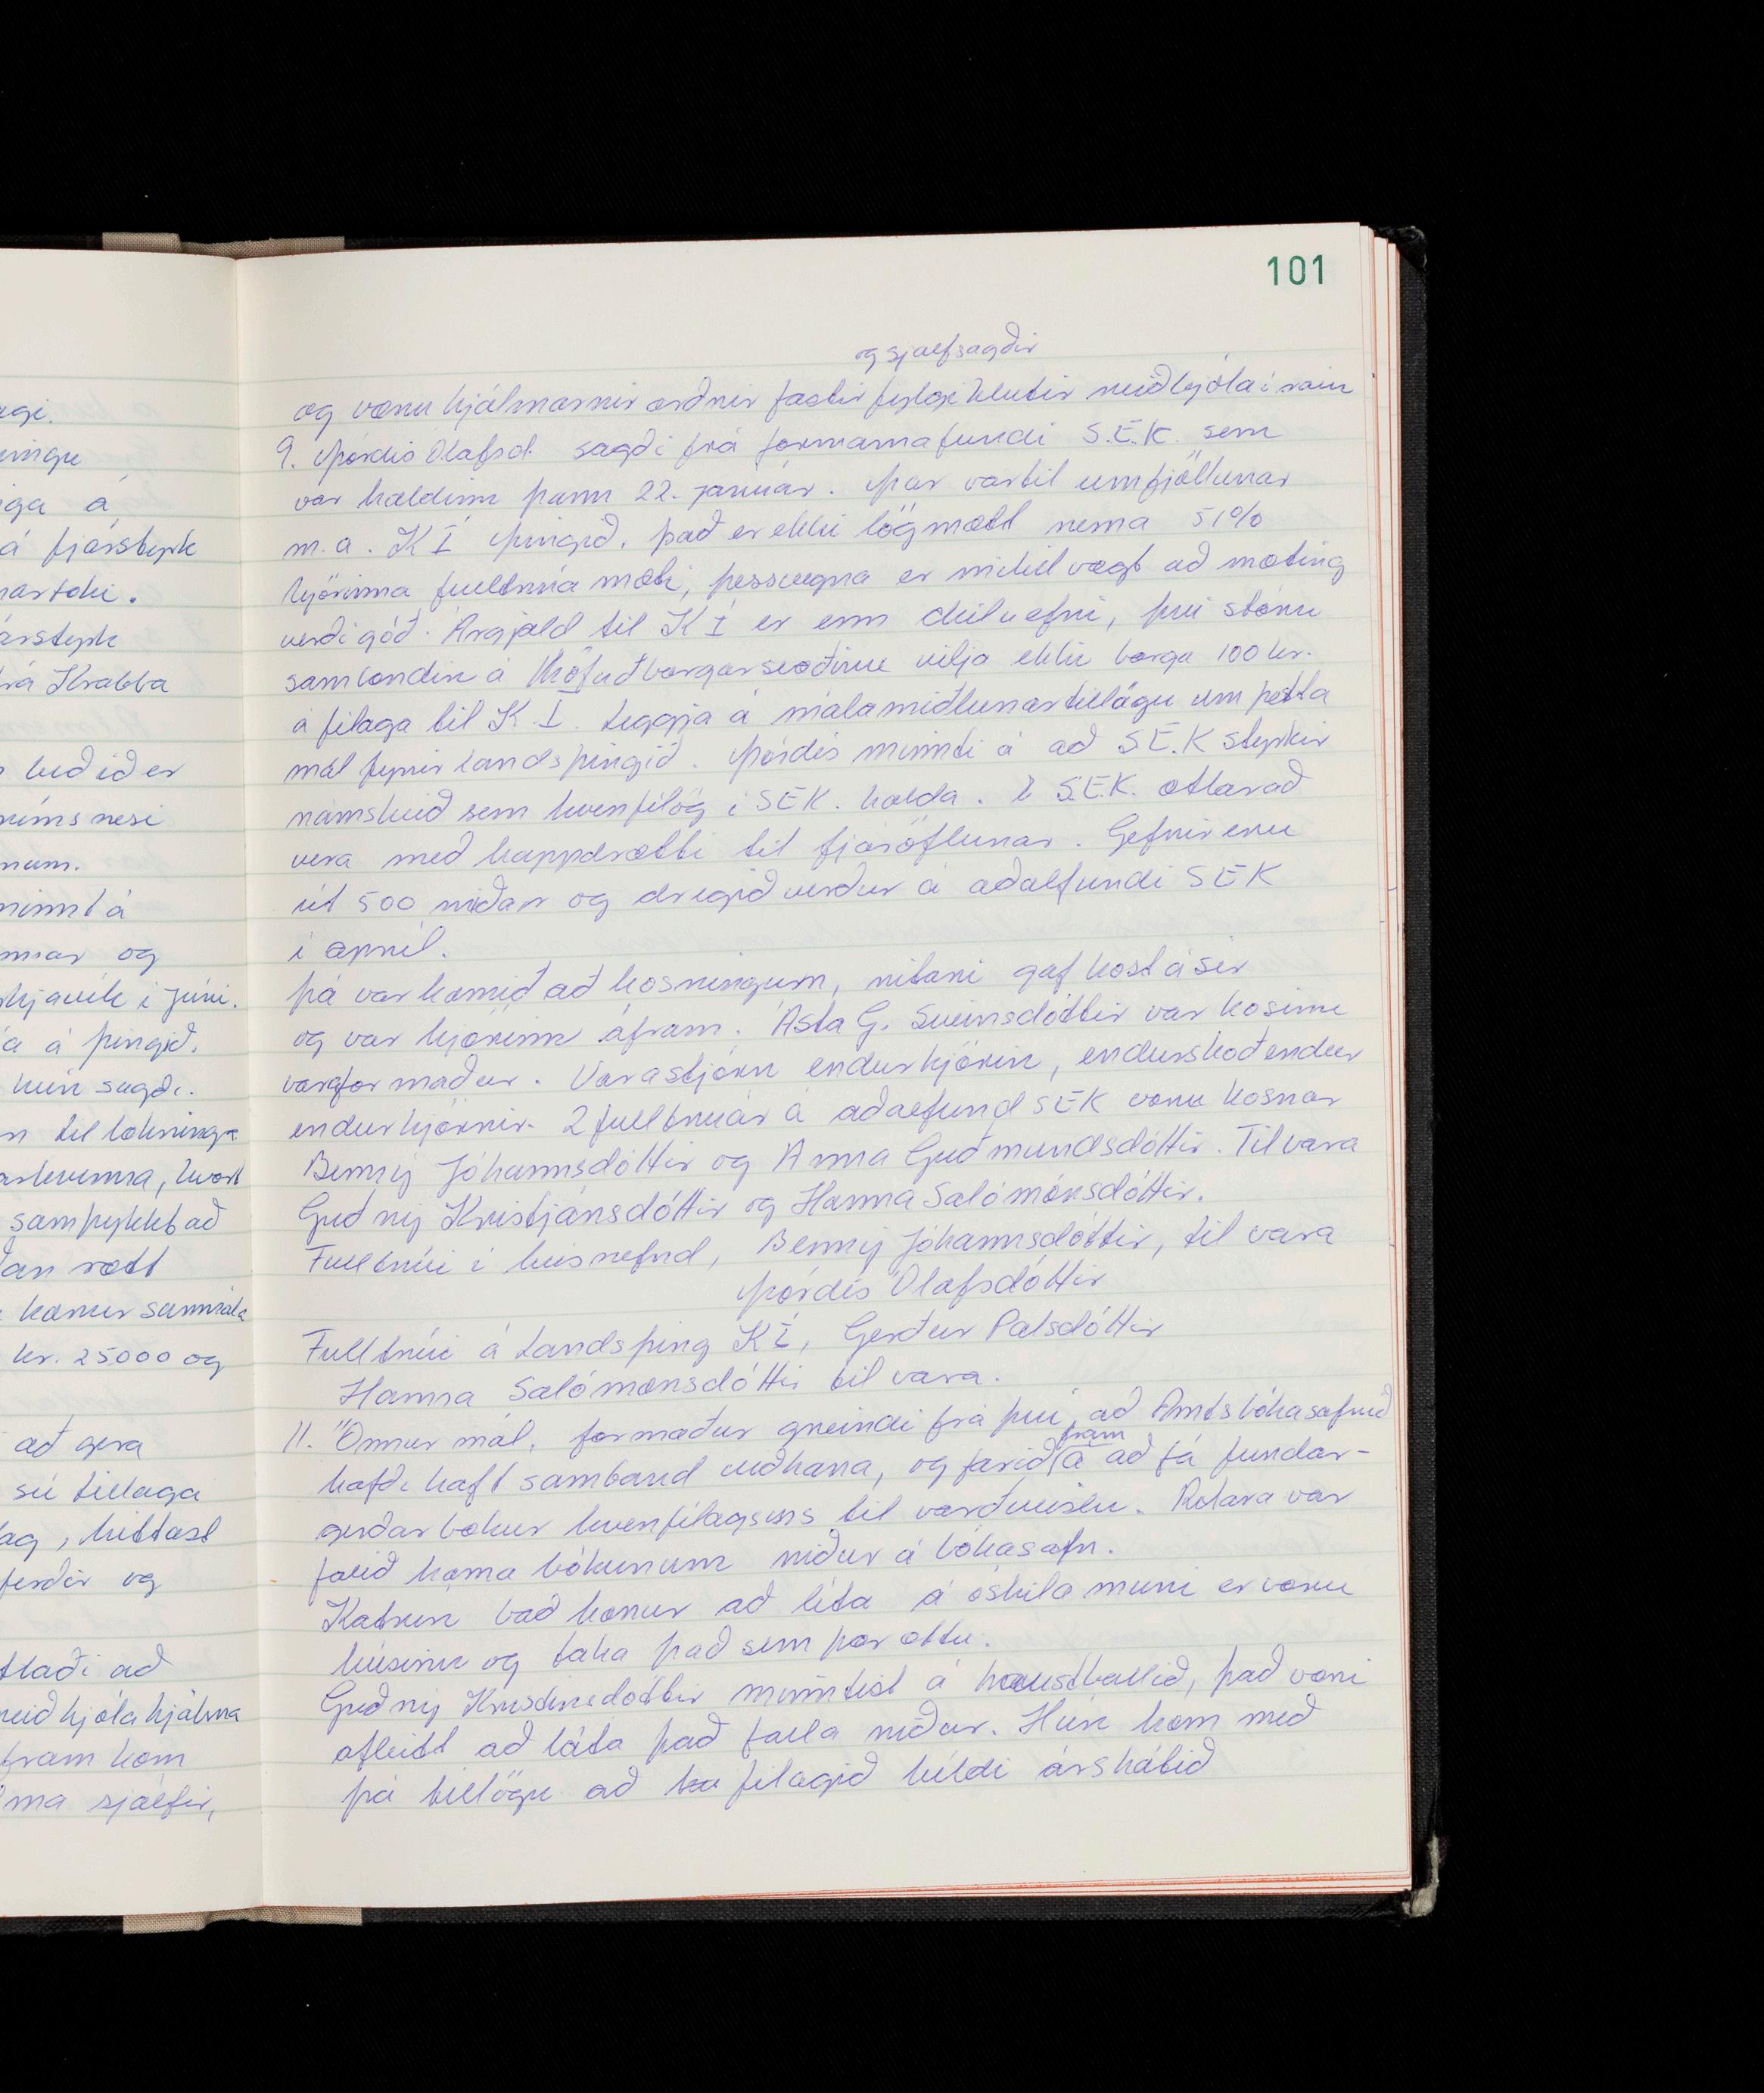 101
og sjálfsagðir
og væru hjálmarnir orðnir fastir fylgihlutir reiðhjóla í raun
9. Þórdís Ólafsd. sagði frá formannafundi S.E.K. sem
var haldinn þann 22. janúar. Þar var til umfjöllunar
m.a. KÍ þingið, það er ekki lögmætt nema 51%
kjörinna fulltrúa mæti, þessvegna er mikilvægt að mæting
verði góð. Árgjald til KÍ er enn deiluefni, því stóru
samböndin á höfuðborgarsvæðinu vilja ekki borga 100 kr.
á félaga til K.Í. Leggja á málamiðlunartillögu um þetta
mál fyrir Landsþingið. Þórdís minnti á að SE.K styrkir
námskeið sem kvenfélög í SEK. halda. S.E.K. ætlar að
vera með happdrætti til fjáröflunar. Gefnir eru
út 500 miðar og dregið verður á aðalfundi SEK
í apríl.
Þá var komið að kosningum, ritari gaf kost á sér
og var kjörinn áfram. Ásta G. Sveinsdóttir var kosinn
varaformaður. Varastjórn endurkjörin, endurskoðendur
endurkjörnir. 2 fulltrúar á aðalfund SEK voru kosnar
Benný Jóhannsdóttir og Anna Guðmundsdóttir. Til vara
Guðný Kristjánsdóttir og Hanna Salómonsdóttir.
Fulltrúi í húsnefnd, Benný Jóhannsdóttir, til vara
Þórdís Ólafsdóttir
Fulltrúi á Landsþing KÍ, Gerður Pálsdóttir
Hanna Salómonsdóttir til vara.
11. Önnur mál, formaður greindi frá því, að Amtsbókasafnið
fram
hafði haft samband við hana, og farið á að fá fundar-
gerðarbækur kvenfélagsins til varðveislu. Ritara var
falið koma bókunum niður á bókasafn.
Katrín bað konur að líta á óskilamuni er væru
húsinu og taka það sem þær ættu.
Guðný Kristinsdóttir minntist á haustballið, það væri
ófært að láta það falla niður. Hún kom með
þá tillögu að félagið héldi árshátíð
agi.
iga á
á fjárstyrk
artoki.
árstyrk
rá Krabba
beðið er
rímsnesi
num.
minnt á
nnar og
kjavík í júní.
a á þingið.
hún sagði.
n til lækninga
arkvenna, hvort
samþykkt að
an rætt
konur sammála
kr. 25000 og
að gera
sú tillaga
ag, hittast
ferðir og
tlaði að
reiðhjólahjálma
fram kom
ma sjálfir,